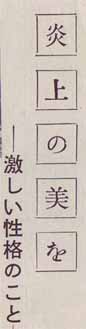 炎上の美を
―激しい性格のこと